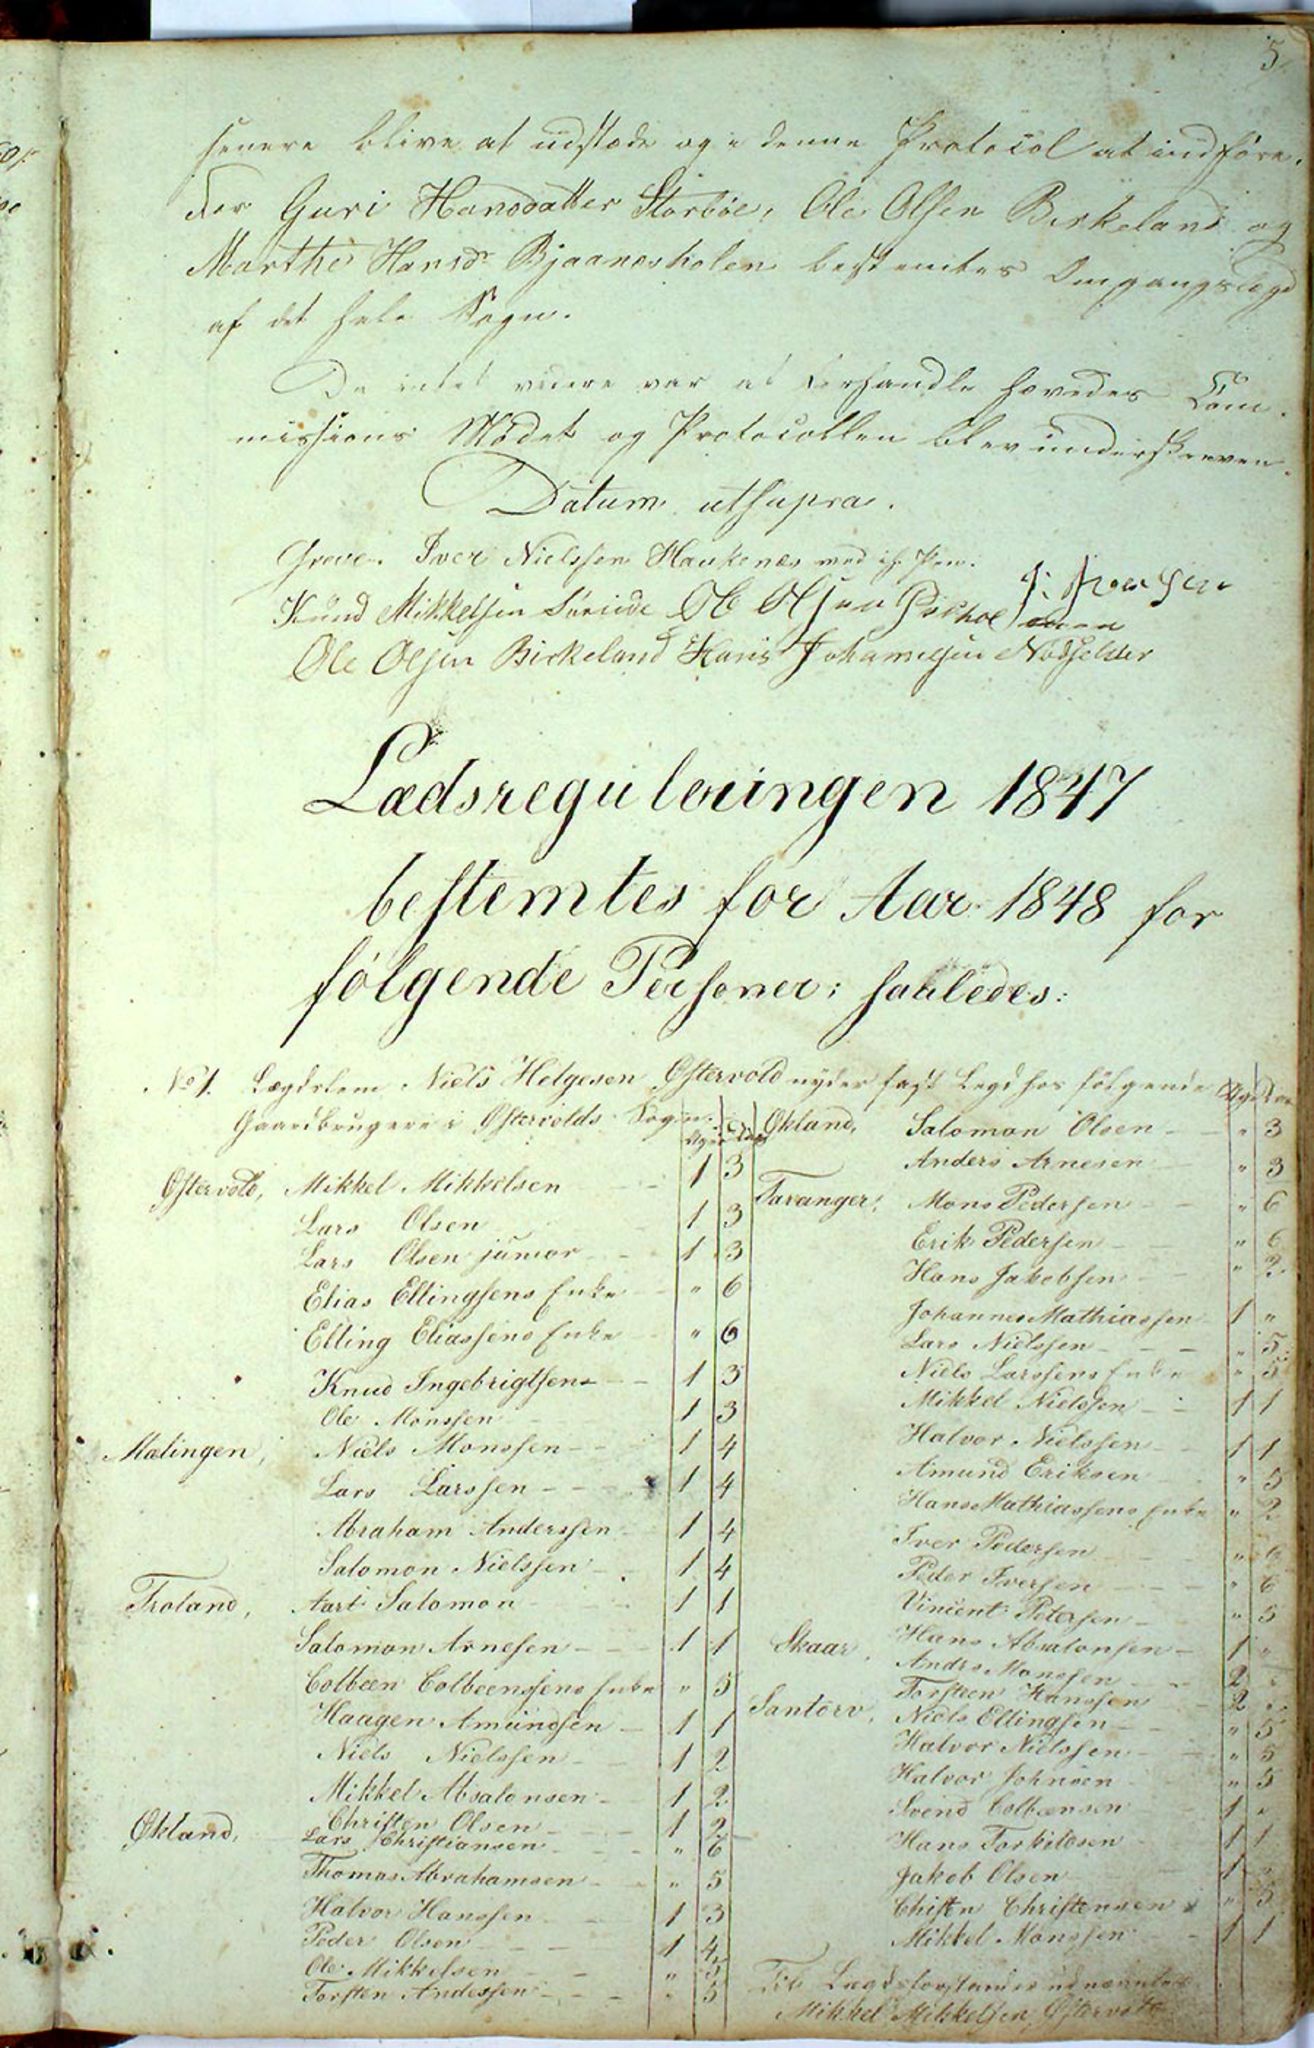 5
senere blive at udstæde og i denne Protocol at indføre.
For Guri Hansdatter Storbøe, Ole Olsen Birkeland og
Marthe Hansdr Bjaanesholen bestemtes Omgangslægd
af det hele Sogn.
Da intet videre var at forhandle hævedes Com-
missions Mödet og Protocollen blev underskreven.
Datum utsupra.
Greve. Iver Nielssen Haukenæs med ih. Pen.
Knud Mikkelsen Søriide Ole Olsen
Ole Olsen Birkeland Hans Johannesen
Lædsreguleringen 1847
bestemtes for Aar 1848 for
følgende Personer; saaledes:
No 1. Lægdslem Niels Helgesen Østervold nyder fast Legd hos følgende Uger Dage
Gaardbrugere i Østervolds Sogn.
Uger Dage
Østervold, Mikkel Mikkelsen - 1 3
Lars Olsen 1 3
Lars Olsen junior - 1 3
Elias Ellingsens Enke - " 6
Elling Eliassens Enke - " 6
Knud Ingebrigtsen - - 1 3
Ole Monssen 1 3
Mælingen, Niels Monssen - - 1 4
Lars Larssen - - - 1 4
Abraham Anderssen - 1 4
Salomon Nielssen - 1 4
Troland, Aart Salomon 1 1
Salomon Arnesen - - 1 1
Colbeen Colbeenssens Enke " 5
Haagen Amundsen - 1 1
Niels Nielssen - 1 2
Mikkel Absalonsen - 1 2
Christen Olsen - 1 2
Økland, Lars Christiansen - - - " 6
Thomas Abrahamsen - - " 5
Halvor Hanssen - - 1 3
Peder Olsen - - - 1 4
Ole Mikkelsen - - " 5
Torsten Anderssen - - - " 5
Økland, Salomon Olsen - - " 3
Anders Arnesen - " 3
Tavanger, Mons Pedersen - - " 6
Erik Pedersen - - " 6
Hans Jakobsen - - " 2
Johannes Mathiassen 1 "
Lars Nielssen - - - " 5
Niels Larssens Enke " 5
Mikkel Nielssen - - 1 1
Halvor Nielssen - 1 1
Amund Eriksen - " 5
Hans Mathiassens Enke " 2
Iver Pedersen - - " 6
Peder Iversen - - " 6
Vincent Petersen - - " 5
Skaar, Hans Absalonsen - 1 "
Andrs Monssen - - 2
Torsteen Hanssen - 2 "
Santorv, Niels Ellingsen - - " 5
Halvor Nielssen - - " 5
Halvor Johnsen " 5
Svend Colbensen 1 "
Hans Torkildsen - 1 1
Jakob Olsen - 1 "
Chisten Christensen " 5
Mikkel Monssen - 1 1
Til Lægdsforstander udnævntes
Mikkel Mikkelsen Østervold